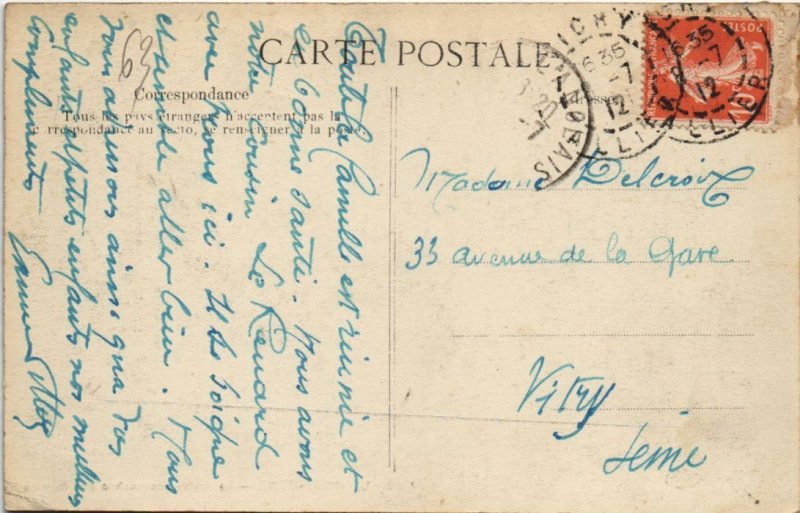 CARTE POSTALE
Correspondance
Tous les pays étrangers n'acceptent pas la
correspondance au recto, se renseigner à la poste
Adresse
63
Toute la famille est réunie et
en bonne santé. Nous avons
notre Cousin Le Renard
avec nous ici. Il se soigne
et semble aller bien. Nous
vous adressons ainsi qu'à vos
enfants et petits enfants nos meilleurs
Compliments
Madame Delcroix
33 avenue de la Gare
Vitry
Seine
VICHY
ALLIER
6 35
-7
12
VICHY
ALLIER
6 35
8 -7
12
3 20
-7
POSTES
10